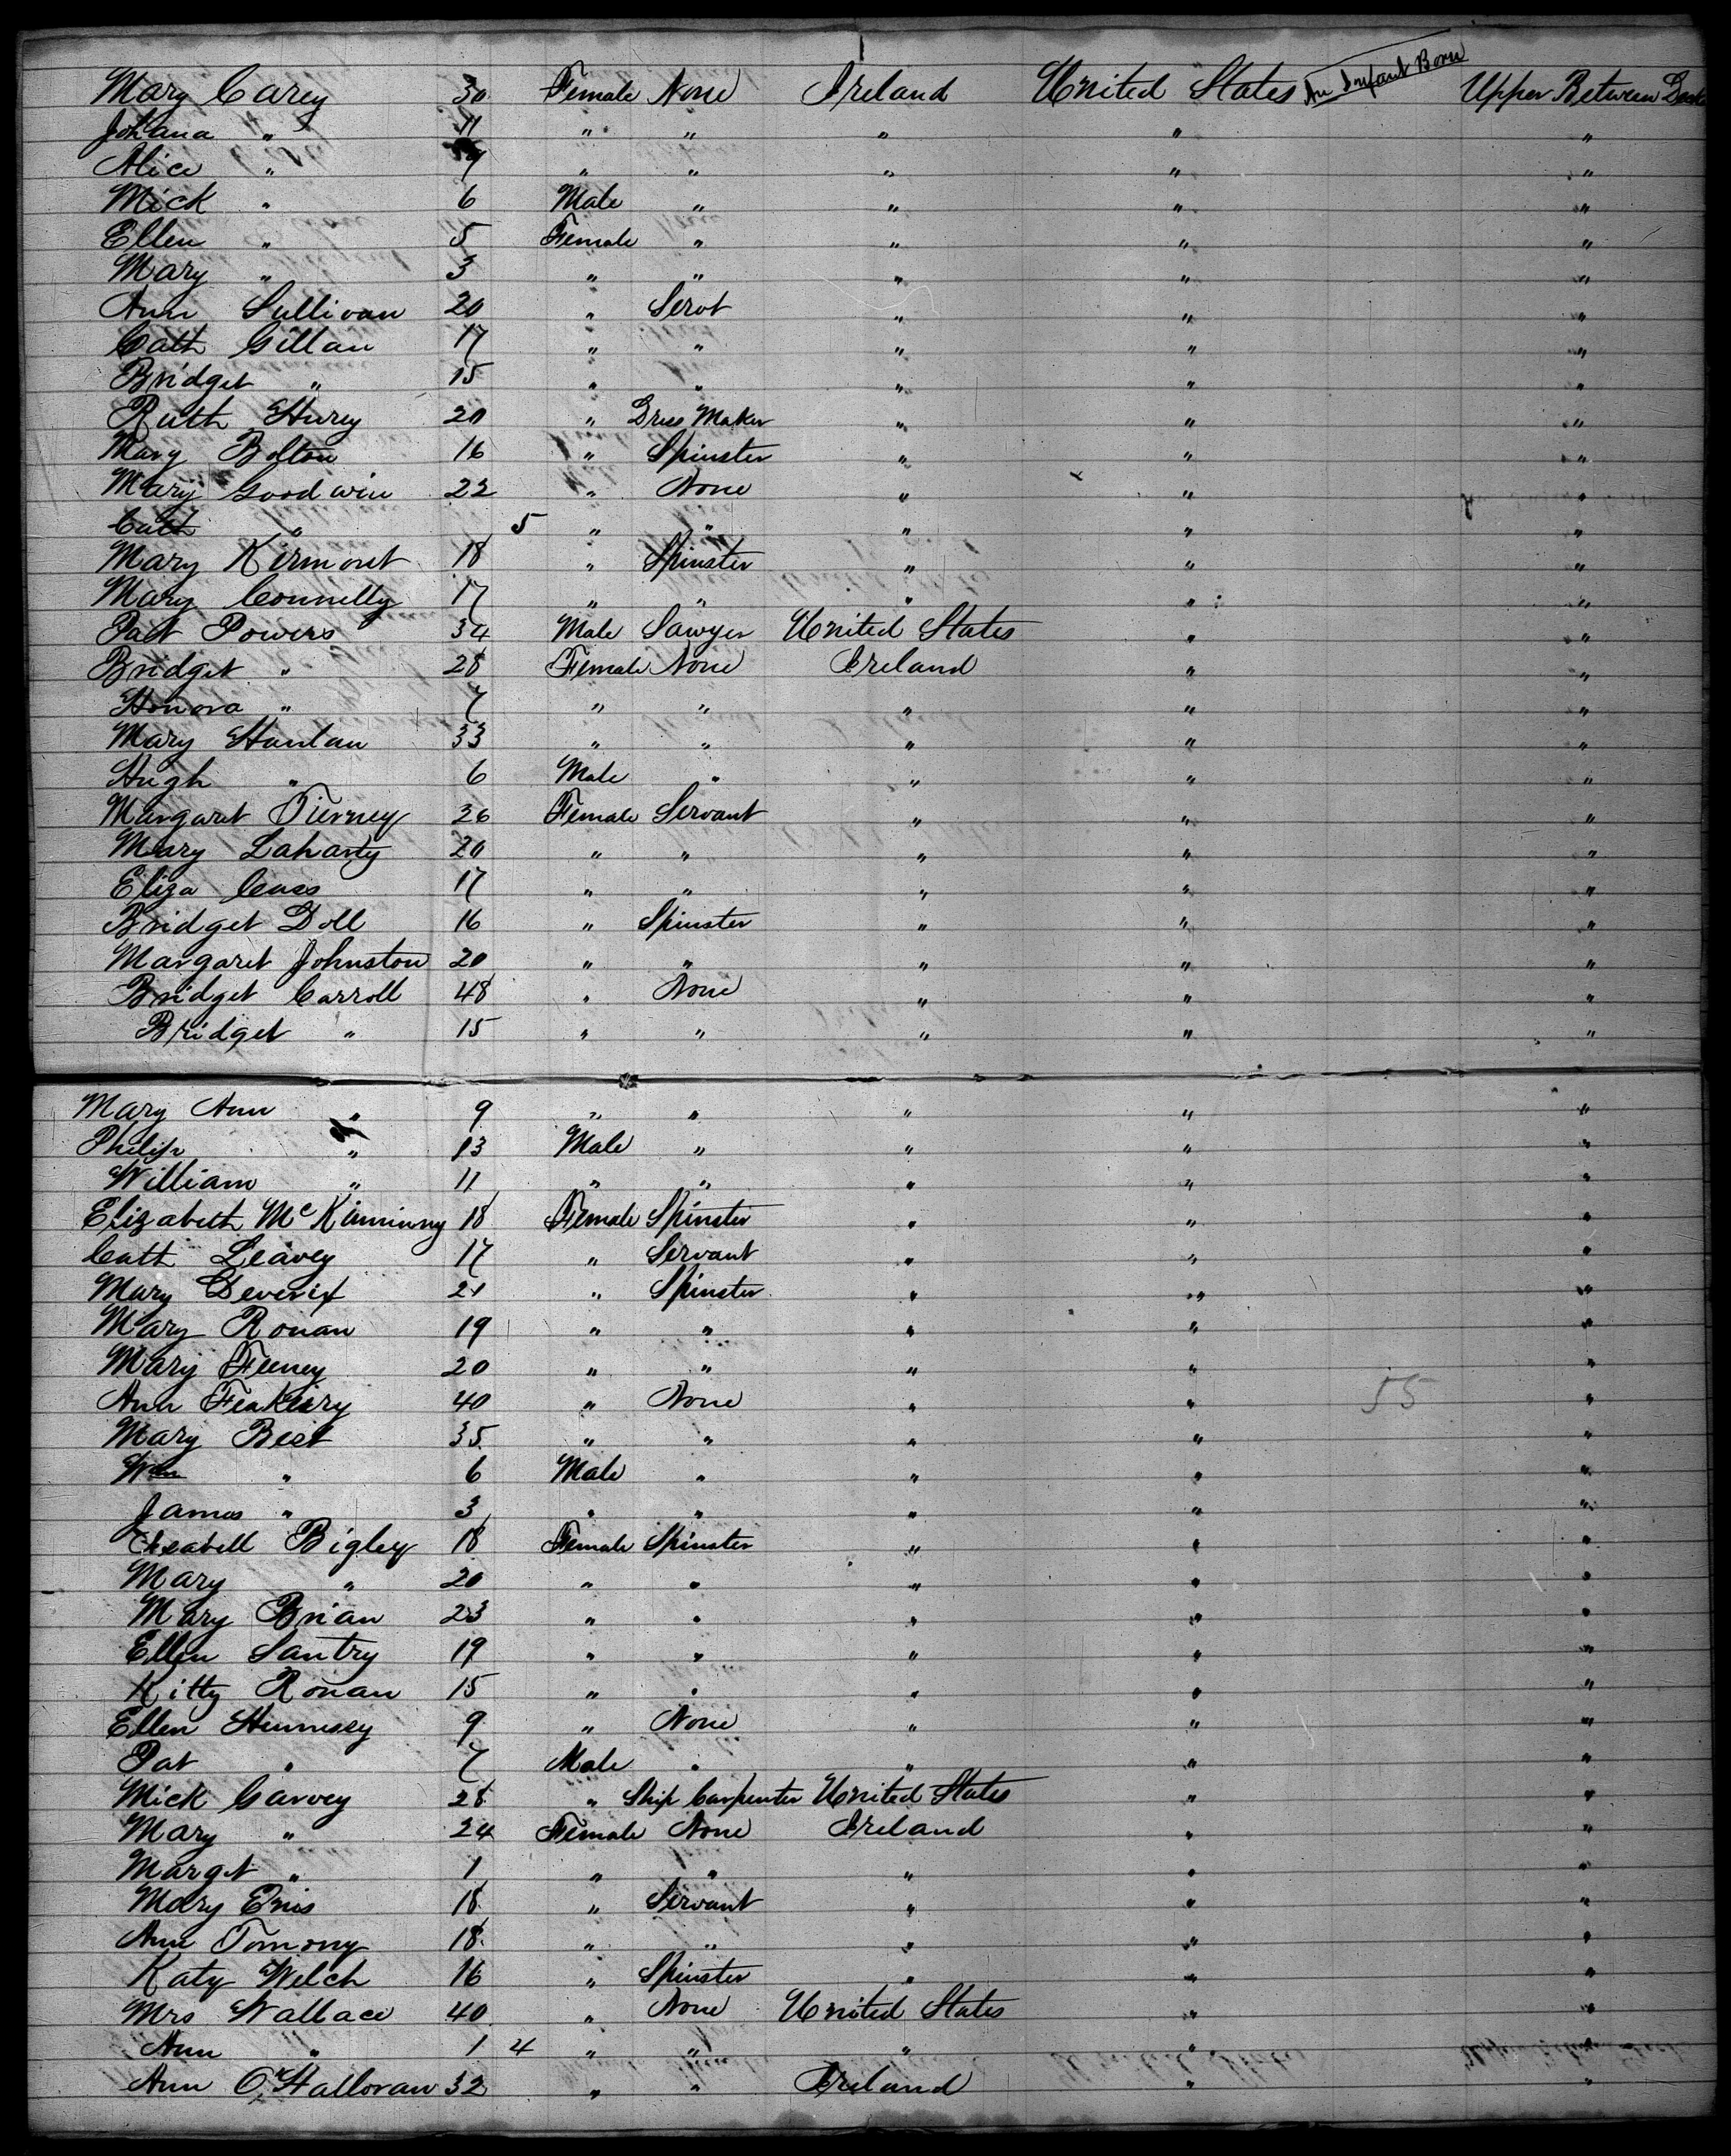 Mary Carey 30 Female None Ireland United States An Infant Born Upper Between Deck
Johana " 11 " " " " "
Alice " 9 " " " " "
Mick " 6 Male " " " "
Ellen " 5 Female " " " "
Mary " 3 " " " " "
Ann Sullivan 20 " Servt " " "
Cath Gillan 17 " " " " "
Bridget " 15 " " " " "
Ruth Hurey 20 " Dress Maker " " "
Mary Bolton 16 " Spinster " " "
Mary Goodwin 22 " None " " "
Cath " 5 " " " " "
Mary Kirmont 18 " Spinster " " "
Mary Connelly 17 " " " " "
Pat Powers 34 Male Sawyer United States " "
Bridget " 28 Female None Ireland " "
Honora " 7 " " " " "
Mary Hanlan 33 " " " " "
Hugh " 6 Male " " " "
Margaret Tierney 26 Female Servant " " "
Mary Laharty 20 " " " " "
Eliza Cass 17 " " " " "
Bridget Doll 16 " Spinster " " "
Margaret Johnston 20 " " " " "
Bridget Carroll 48 " None " " "
Bridget " 15 " " " " "
Mary Ann " 9 " " " " "
Philip " 13 Male " " " "
William " 11 " " " " "
Elizabeth McKiminny 18 Female Spinster " " "
Cath Leavey 17 " Servant " " "
Mary Deverix 21 " Spinster " " "
Mary Ronan 19 " " " " "
Mary Feeney 20 " " " " "
Ann 40 " None " " 55 "
Mary Best 35 " " " " "
Wm " 6 Male " " " "
James " 3 " " " " "
Isabell Bigley 18 Female Spinster " " "
Mary " 20 " " " " "
Mary Brian 23 " " " " "
Ellen Santry 19 " " " " "
Kitty Ronan 15 " " " " "
Ellen Hennessy 9 " None " " "
Pat " 7 Male " " " "
Mick Garvey 28 " Ship Carpenter United States " "
Mary " 24 Female None Ireland " "
Marget " 1 " " " " "
Mary Enis 18 " Servant " " "
Ann Tomony 18 " " " " "
Katy Welch 16 " Spinster " " "
Mrs Wallace 40 " None United States " "
Ann " 1 4 " " " " "
Ann O'Halloran 32 " " Ireland " "